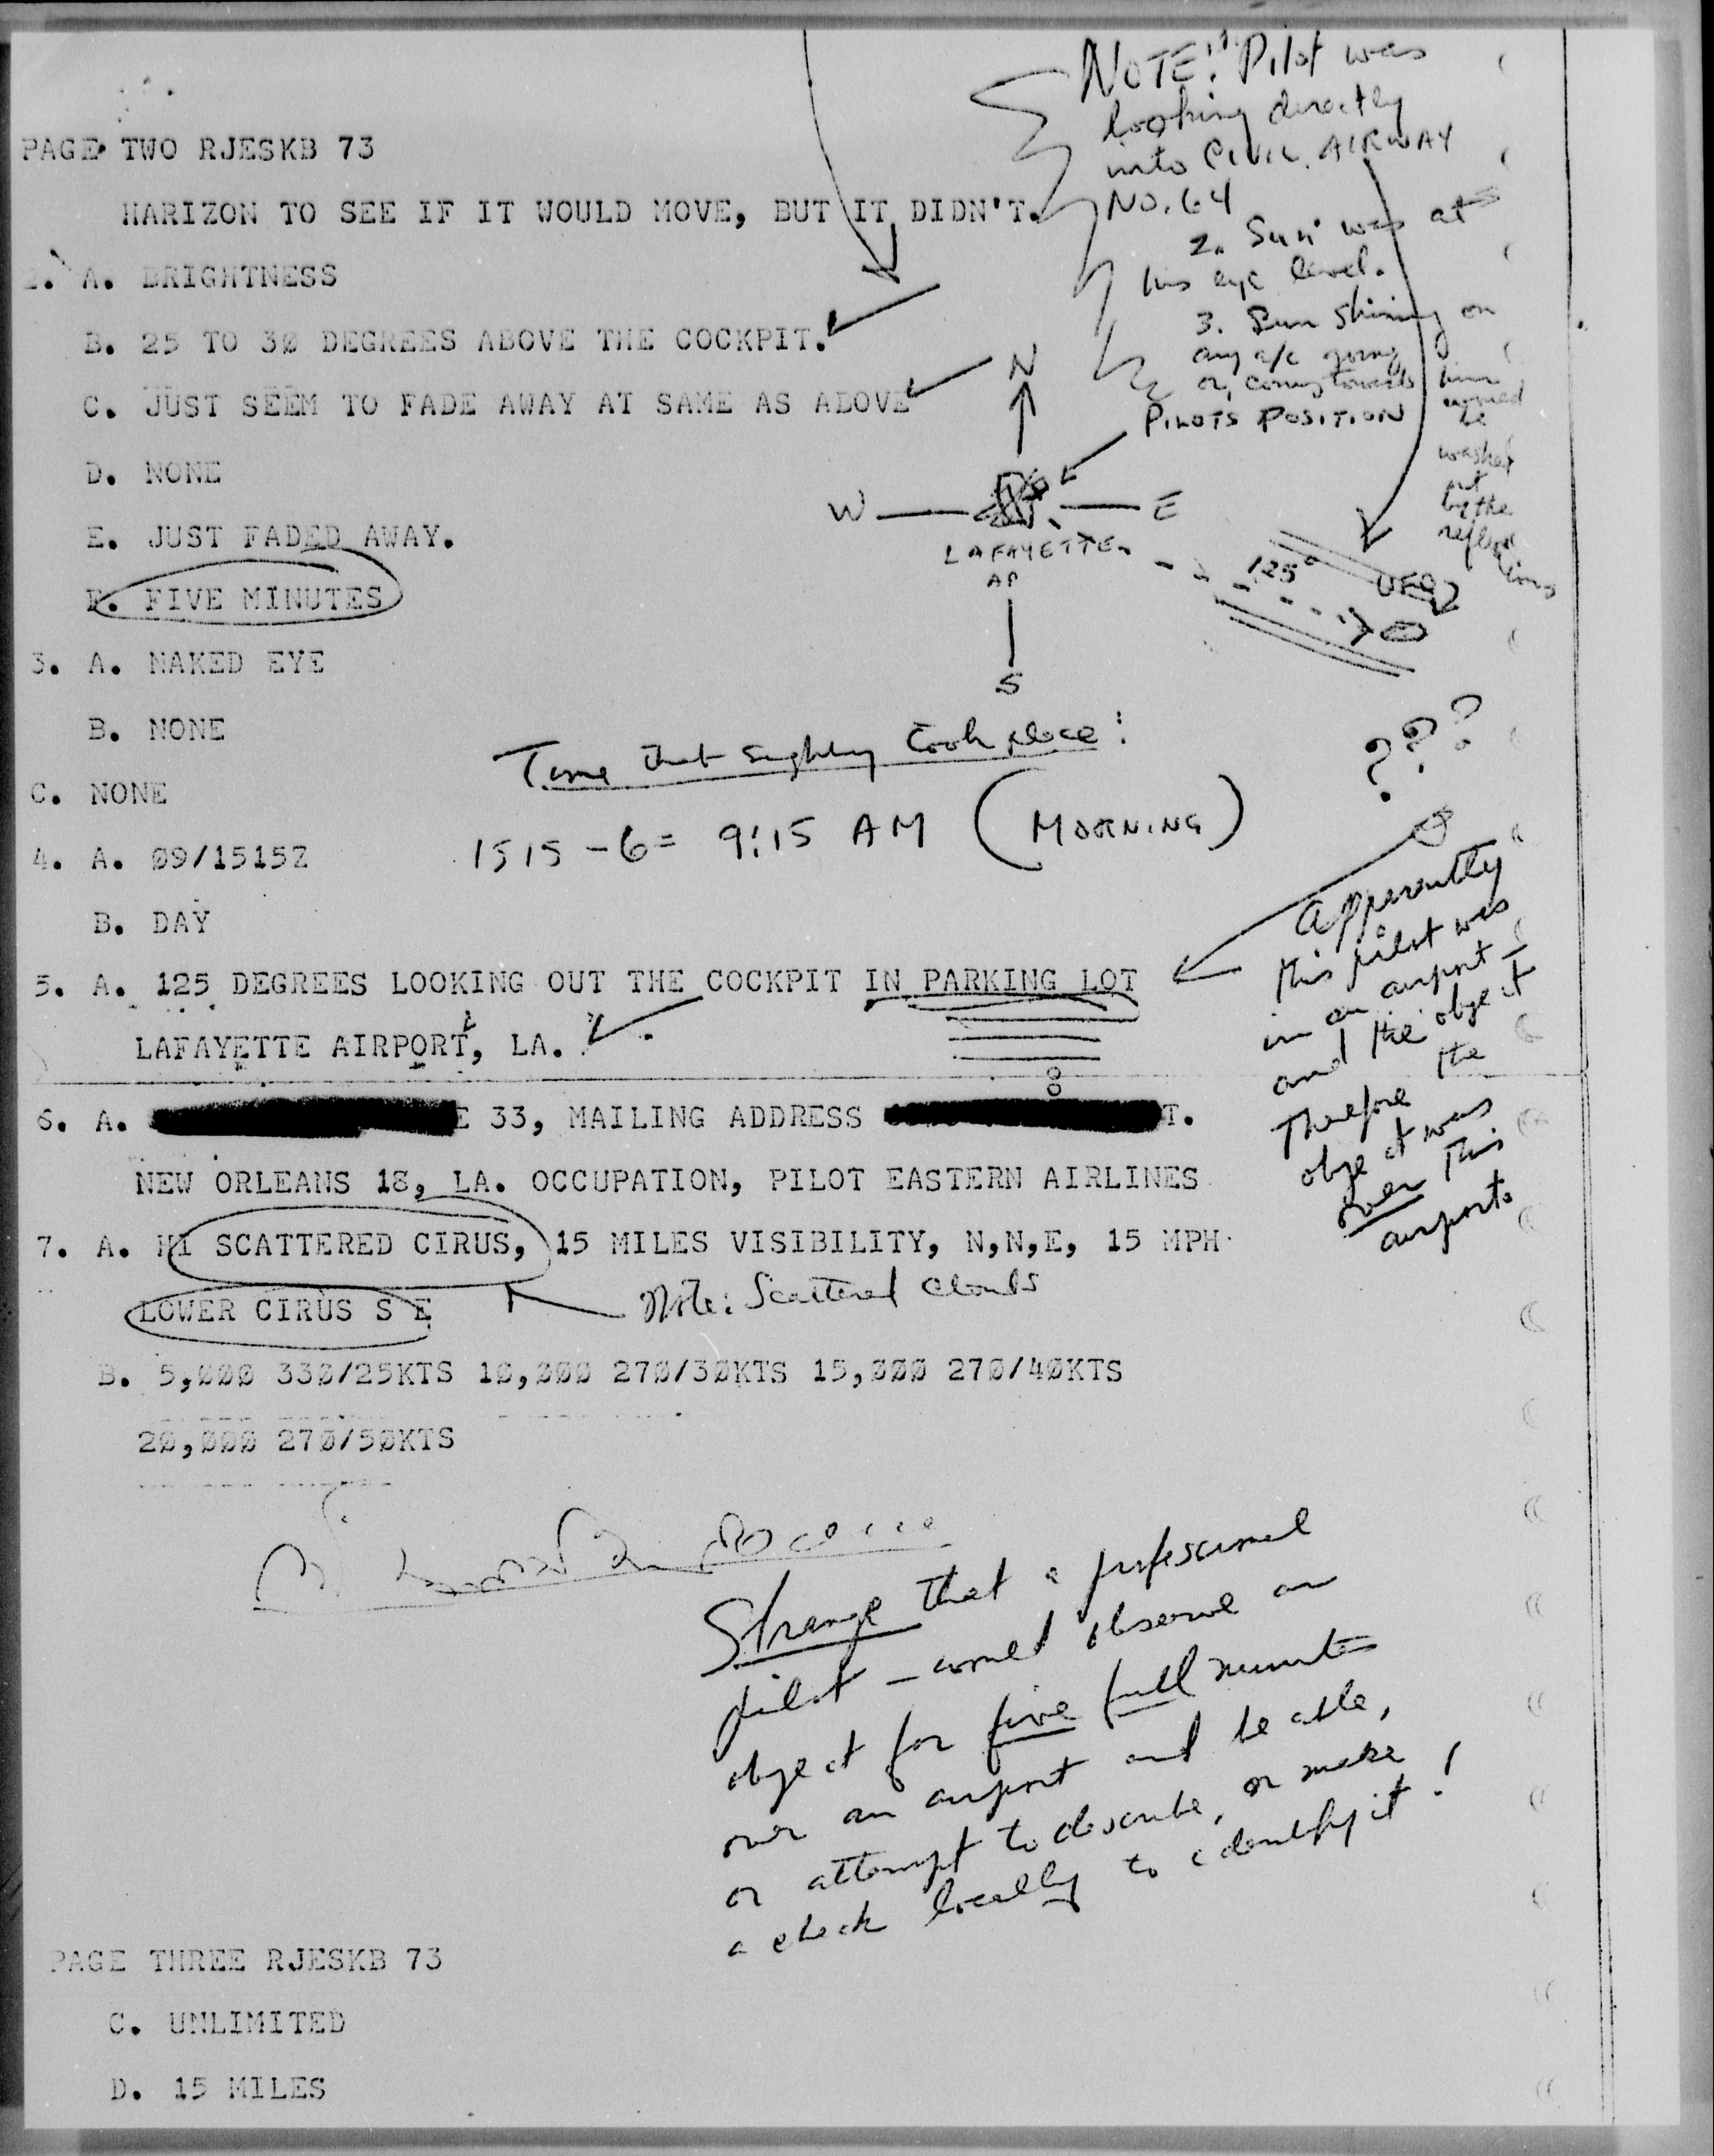 NOTE: 1. Pilot was
looking directly
into CIVIL AIRWAY
NO. 64
2. Sun was at
his eye level.
3. Sun shining on
any a/c going
or coming towards him
would
be
washed
out
by the
reflections
PAGE TWO RJESKB 73
HARIZON TO SEE IF IT WOULD MOVE, BUT IT DIDN'T.
2. A. BRIGHTNESS
B. 25 TO 30 DEGREES ABOVE THE COCKPIT.
C. JUST SEEM TO FADE AWAY AT SAME AS ABOVE
D. NONE
E. JUST FADED AWAY.
F. FIVE MINUTES
N
PILOTS POSITION
W E
LAFAYETTE
AP
125°
S
3. A. NAKED EYE
B. NONE
C. NONE
Time that sighting took place:
1515 - 6 = 9:15 AM (MORNING)
4. A. 09/1515Z
B. DAY
5. A. 125 DEGREES LOOKING OUT THE COCKPIT IN PARKING LOT
LAFAYETTE AIRPORT, LA.
???
Apparently
this pilot was
in an airport
and the object
Therefore the
object was
over this
airport.
6. A. E 33, MAILING ADDRESS T.
NEW ORLEANS 18, LA. OCCUPATION, PILOT EASTERN AIRLINES
7. A. HI SCATTERED CIRUS, 15 MILES VISIBILITY, N,N,E, 15 MPH
LOWER CIRUS S E
Note: Scattered clouds
B. 5,000 330/25KTS 10,000 270/30KTS 15,000 270/40KTS
20,000 270/50KTS
Strange that a professional
pilot - would observe an
object for five full minutes
over an airport and be able,
or attempt to describe, or make
a check locally to identify it!
PAGE THREE RJESKB 73
C. UNLIMITED
D. 15 MILES